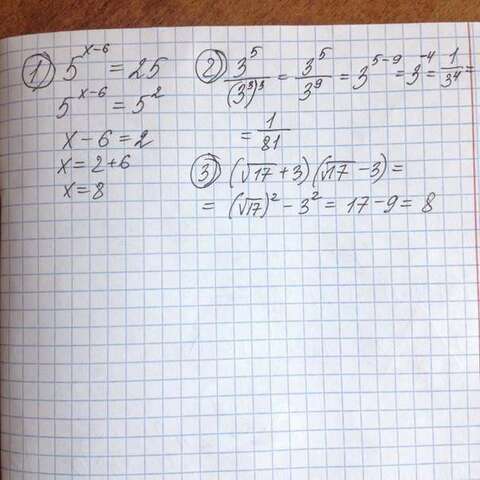 1) 5^(x-6) = 25
5^(x-6) = 5^2
x - 6 = 2
x = 2 + 6
x = 8
2) 3^5/(3^3)^3 = 3^5/3^9 = 3^(5-9) = 3^(-4) = 1/3^4 =
= 1/81
3) (√17 + 3)(√17 - 3) =
= (√17)^2 - 3^2 = 17 - 9 = 8